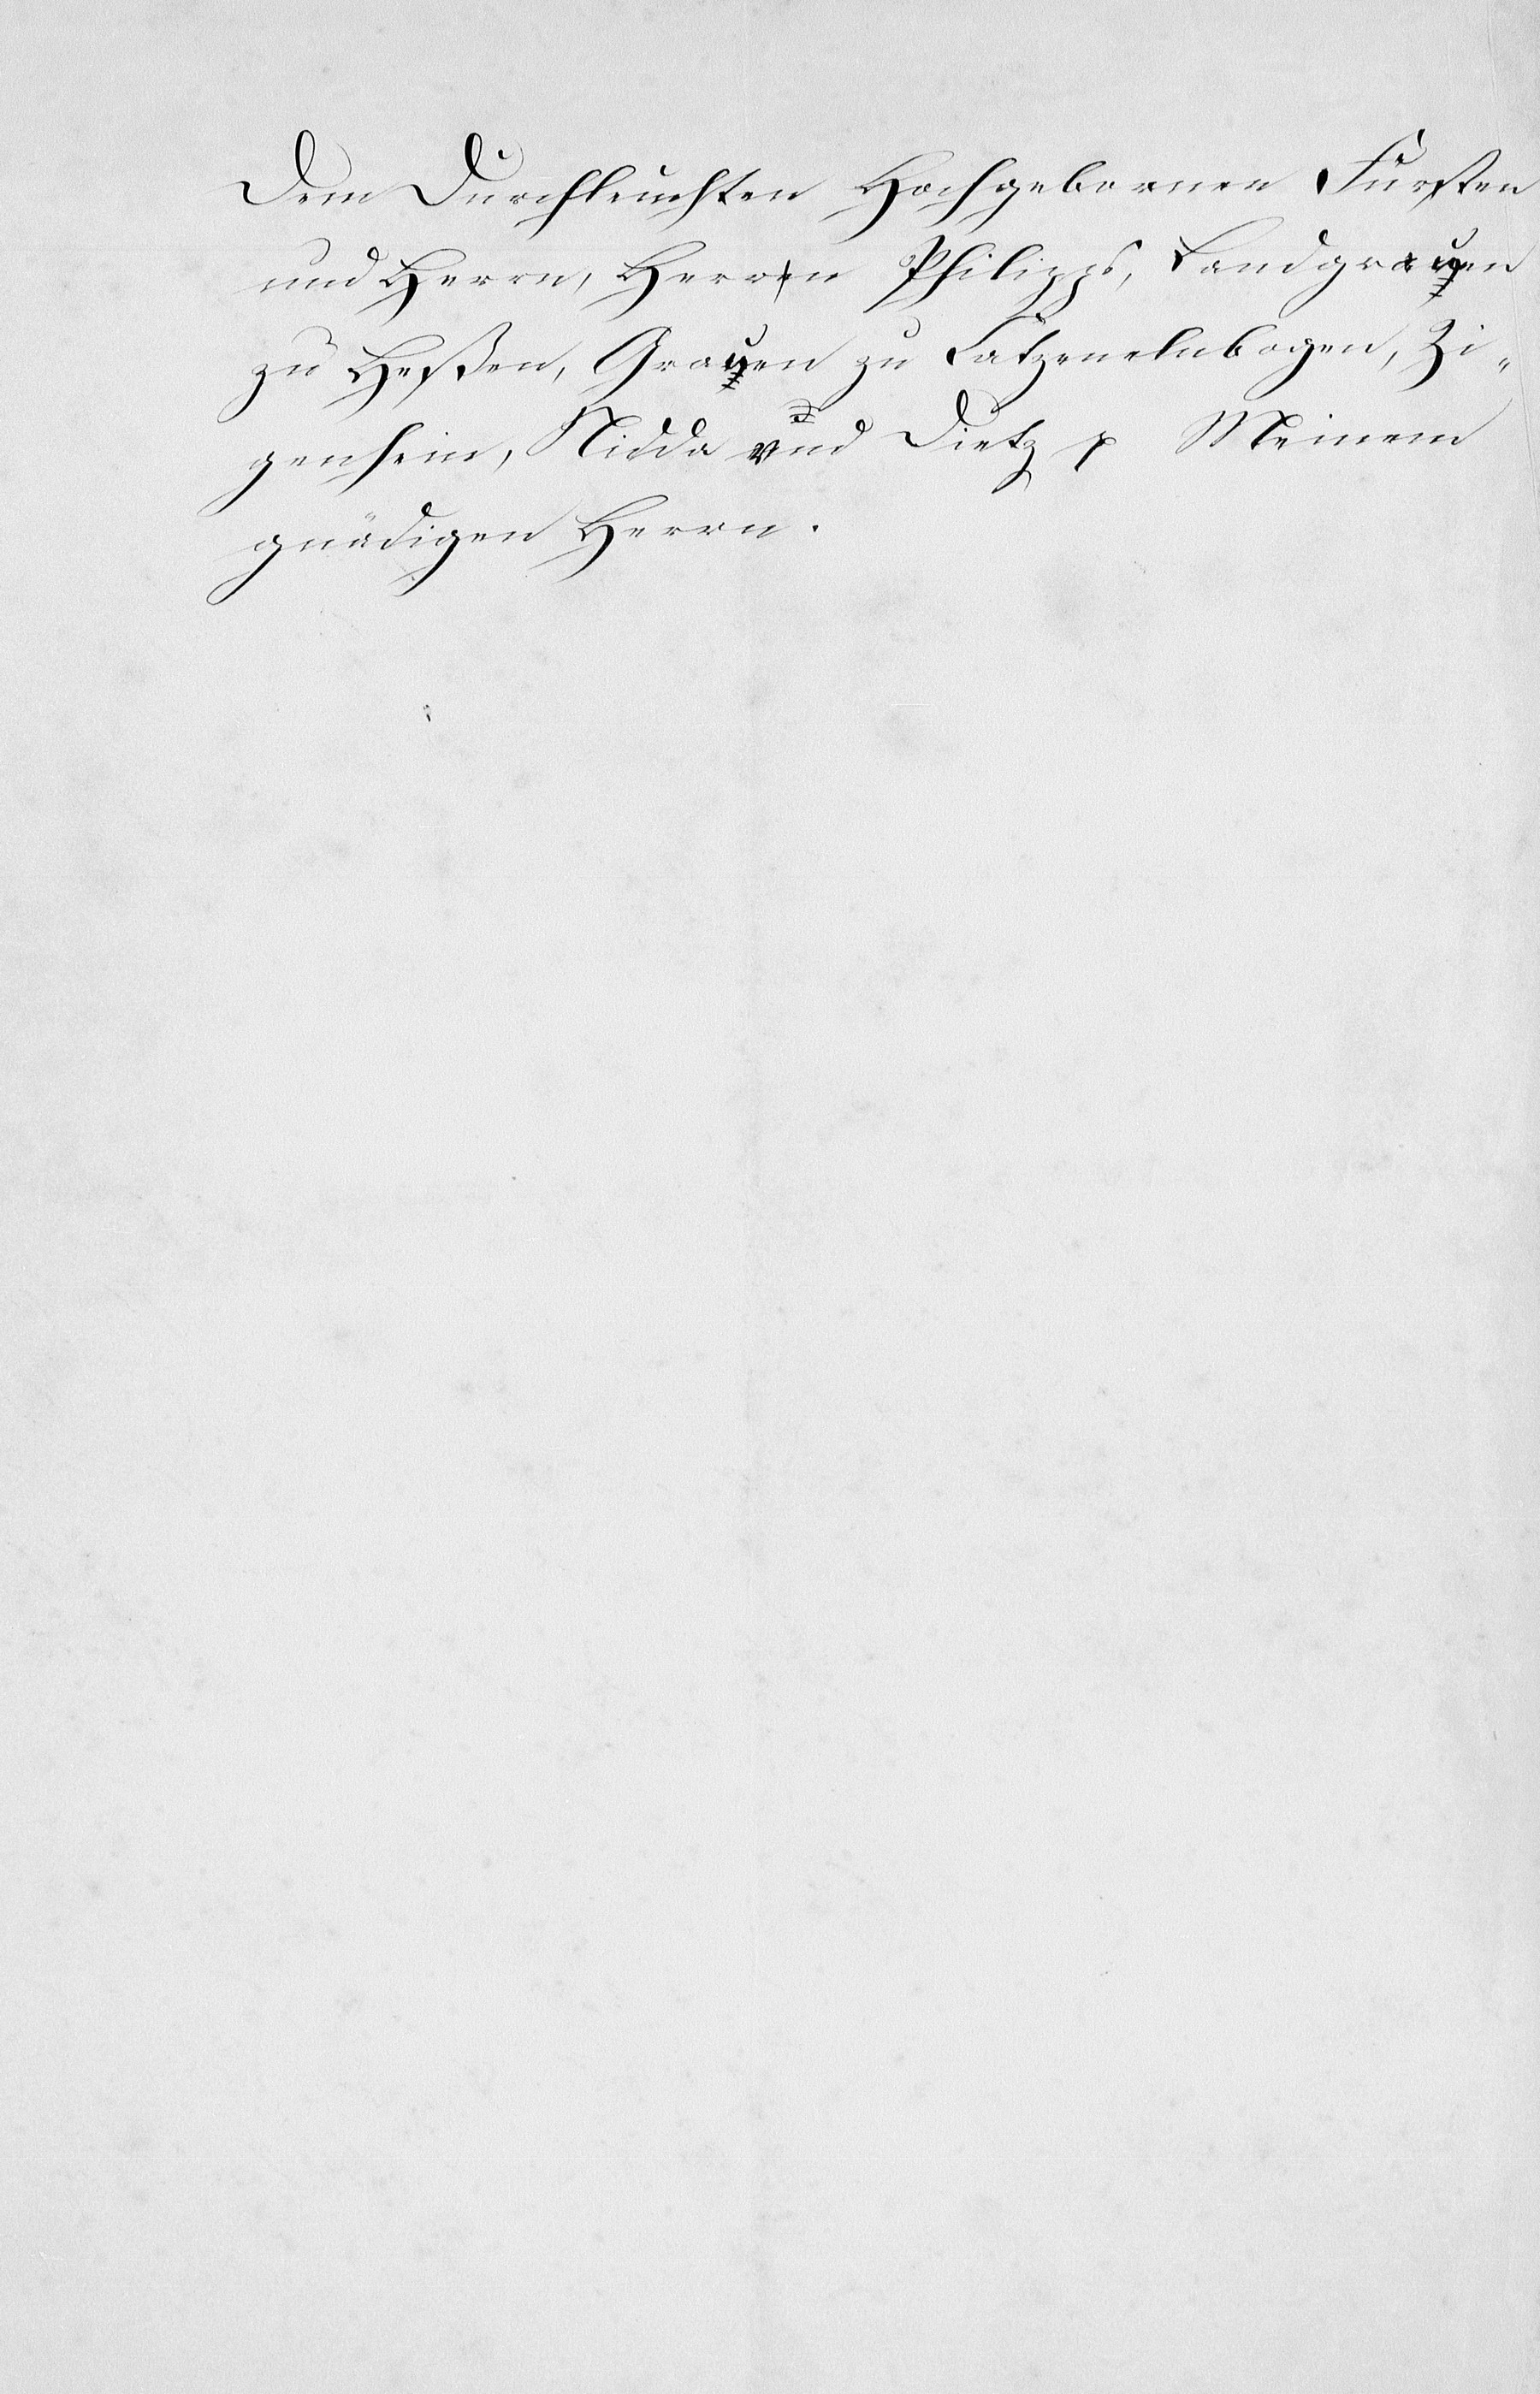 Dem Durchleuchten Hochgebornen Fürsten
und Herrn, Herrn Philipps, Landgrauen
zu Heßen, Grauen zu Catzenelnbogen, Zi„
genhein, Nidda vnd Dietz p Meinem
gnädigen Herrn.